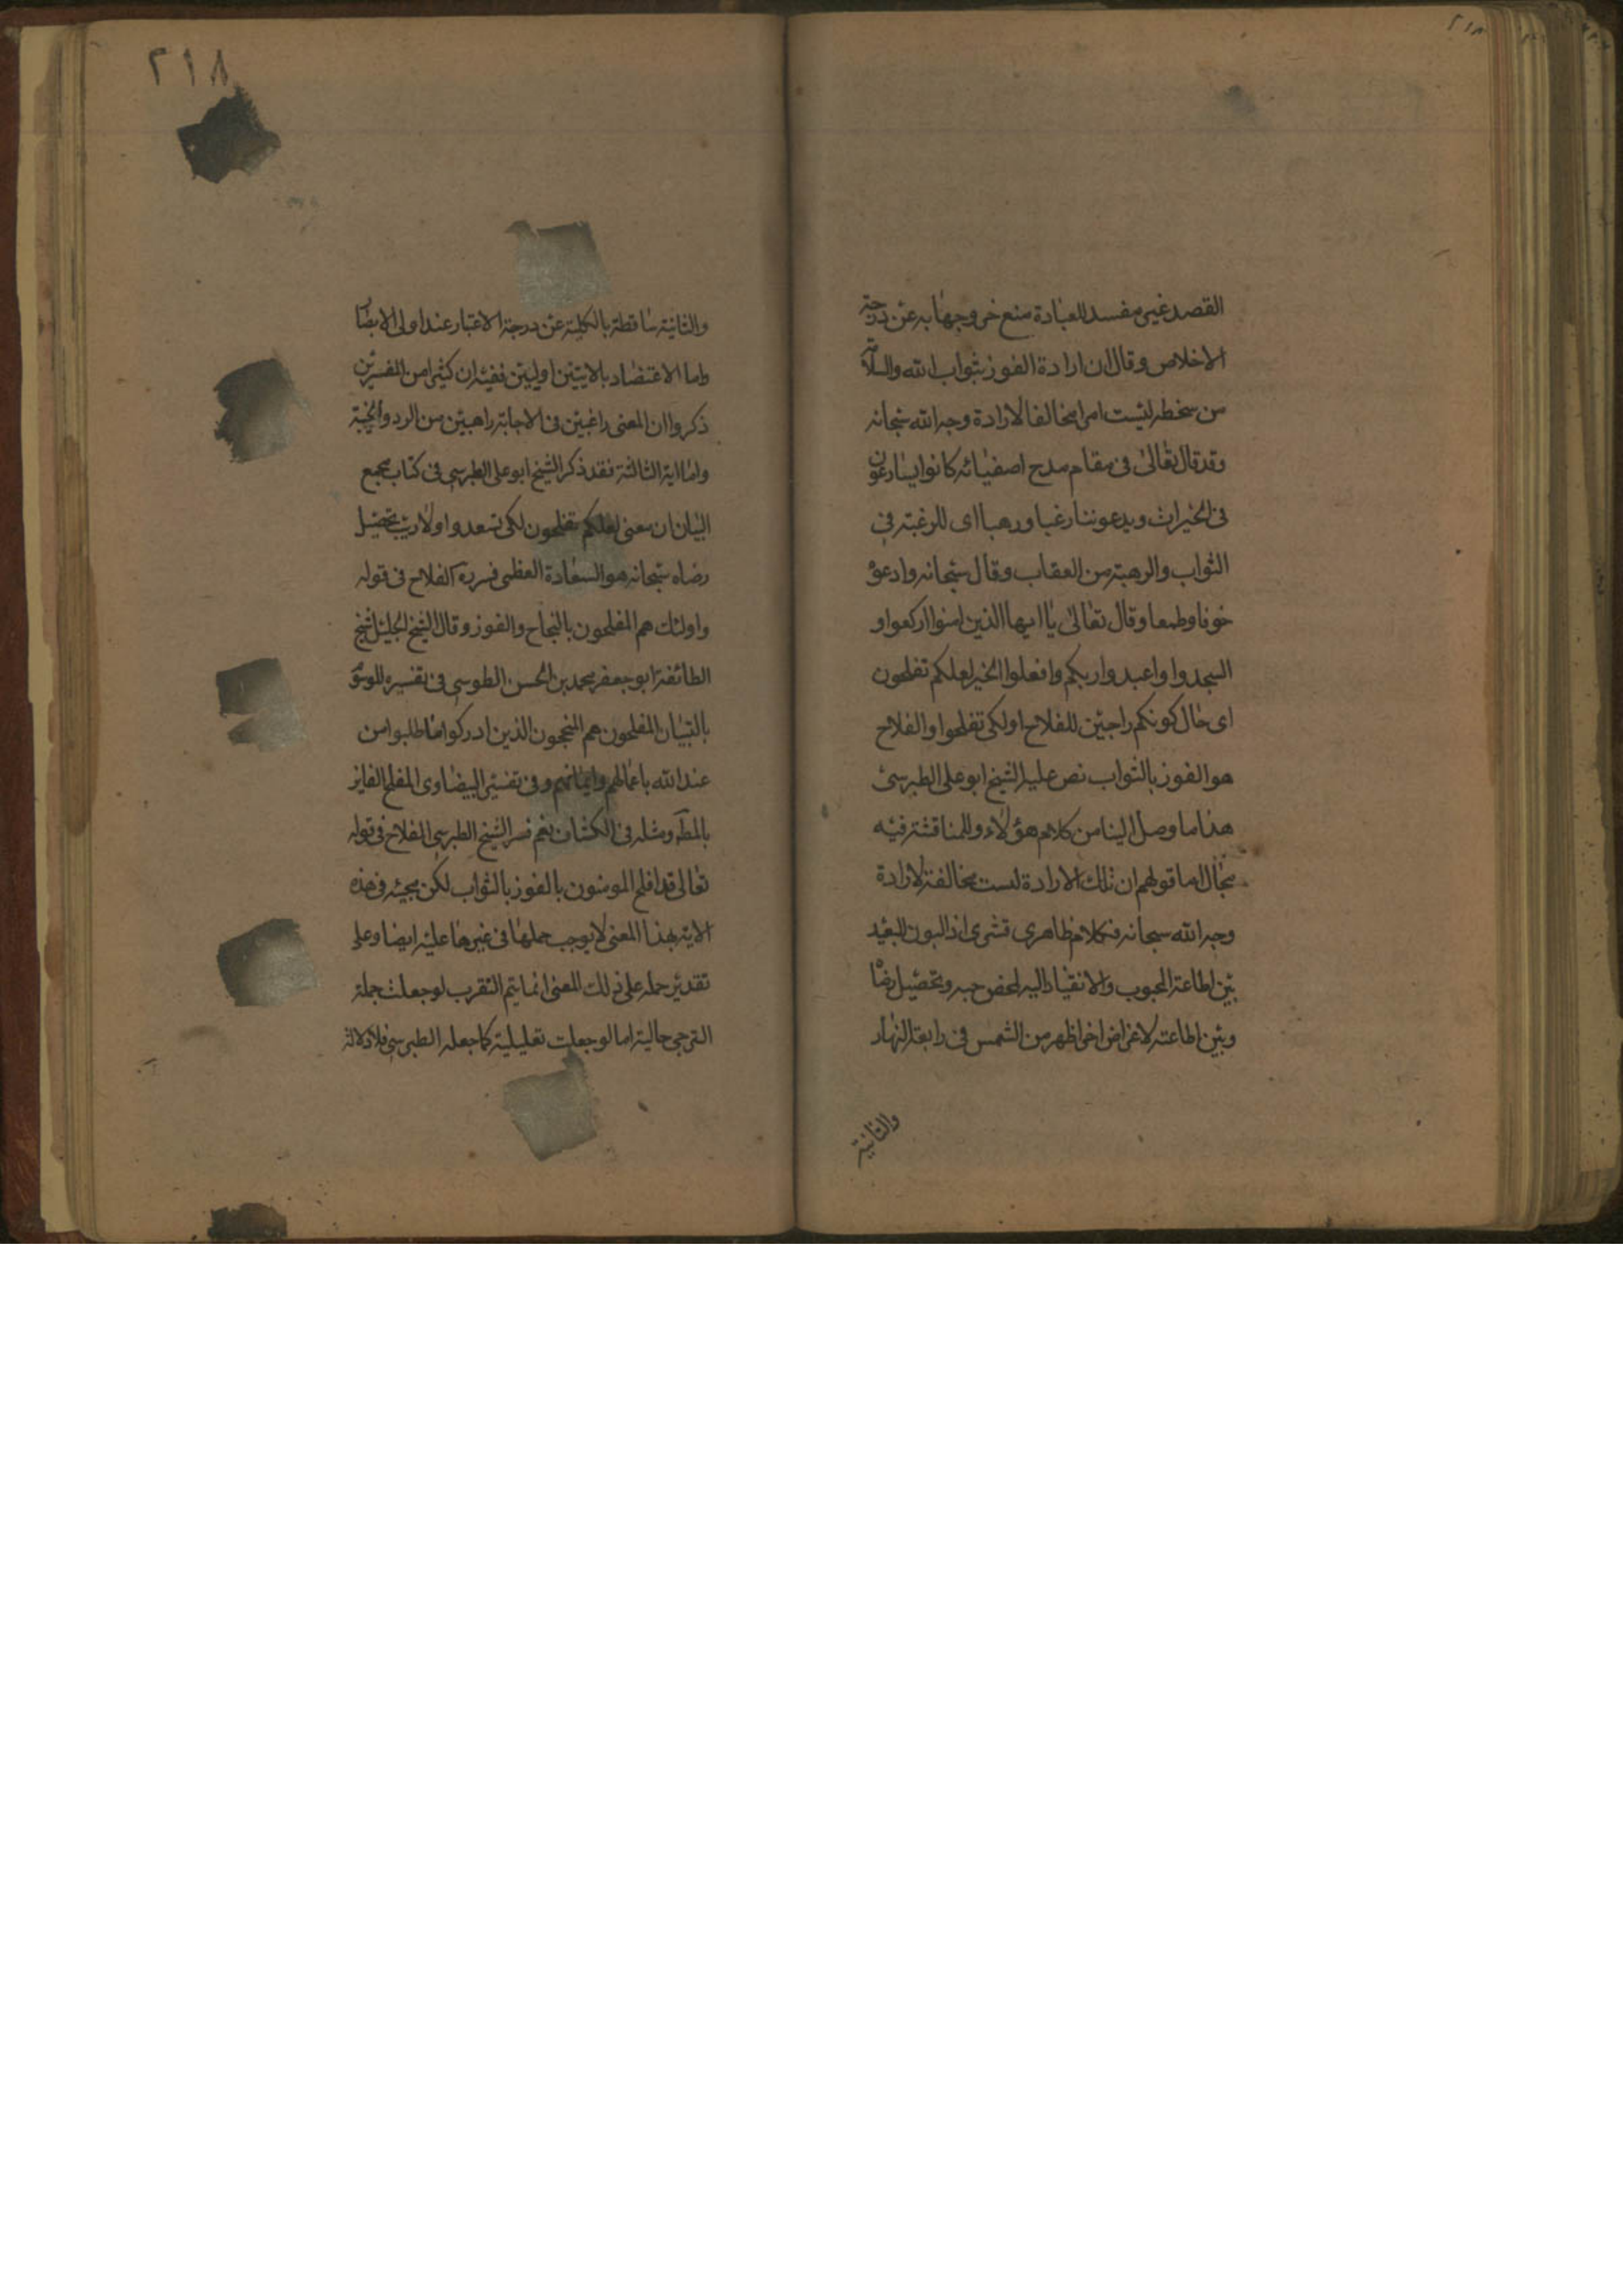 القصد غير مفسد للعبادة منع خروجها به عن درجة
الاخلاص وقال ان ارادة الفوز بثواب الله والسلامة
من سخطه ليست امرا مخالفا لارادة وجه الله سبحانه
وقد قال تعالى في مقام مدح اصفيائه كانوا يسارعون
في الخيرات ويدعوننا رغبا ورهبا اى للرغبة في
الثواب والرهبة من العقاب وقال سبحانه وادعوه
خوفا وطمعا وقال تعالى يا ايها الذين امنوا اركعوا و
اسجدوا واعبدوا ربكم وافعلوا الخير لعلكم تفلحون
اى حال كونكم راجين للفلاح او لكى تفلحوا والفلاح
هو الفوز بالثواب نص عليه الشيخ ابو على الطبرسى
هذا ما وصل الينا من كلام هؤلاء وللمناقشة فيه
مجال اما قولهم ان تلك الارادة ليست مخالفة لارادة
وجه الله سبحانه فكلام ظاهرى قشرى اذ البون البعيد
بين اطاعة المحبوب والانقياد اليه لمحض حبه وتحصيل رضاه
وبين اطاعته لاغراض اخر اظهر من الشمس في رابعة النهار
والثانية
٢١٨
والثانية ساقطة بالكلية عن درجة الاعتبار عند اولى الابصار
واما الاعتضاد بالايتين اوليين ففيه ان كثيرا من المفسرين
ذكروا ان المعنى راغبين في الاجابة راهبين من الرد والخيبة
واما الاية الثالثة فقد ذكر الشيخ ابو على الطبرسى في كتاب مجمع
البيان ان معنى لعلكم تفلحون لكى تسعدوا ولا ريب تحصيل
رضاه سبحانه هو السعادة العظمى فسر به الفلاح في قوله
واولئك هم المفلحون بالنجاح والفوز وقال الشيخ الجليل شيخ
الطائفة ابو جعفر محمد بن الحسن الطوسى في تفسيره الموسوم
بالتبيان المفلحون هم المنجحون الذين ادركوا ما طلبوا من
عند الله باعمالهم وايمانهم وفي تفسير البيضاوى المفلح الفايز
بالمط ومثله في الكشاف نعم فسر الشيخ الطبرسى الفلاح في قوله
تعالى قد افلح المومنون بالفوز بالثواب لكن مجيئه في هذه
الاية بهذا المعنى لا يوجب حملها في غيرها عليه ايضا وعلى
تقدير حمله على ذلك المعنى انما يتم التقرب لو جعلت جملة
الترجى حالية اما لو جعلت تعليلية كما جعله الطبرسى فلا دلالة